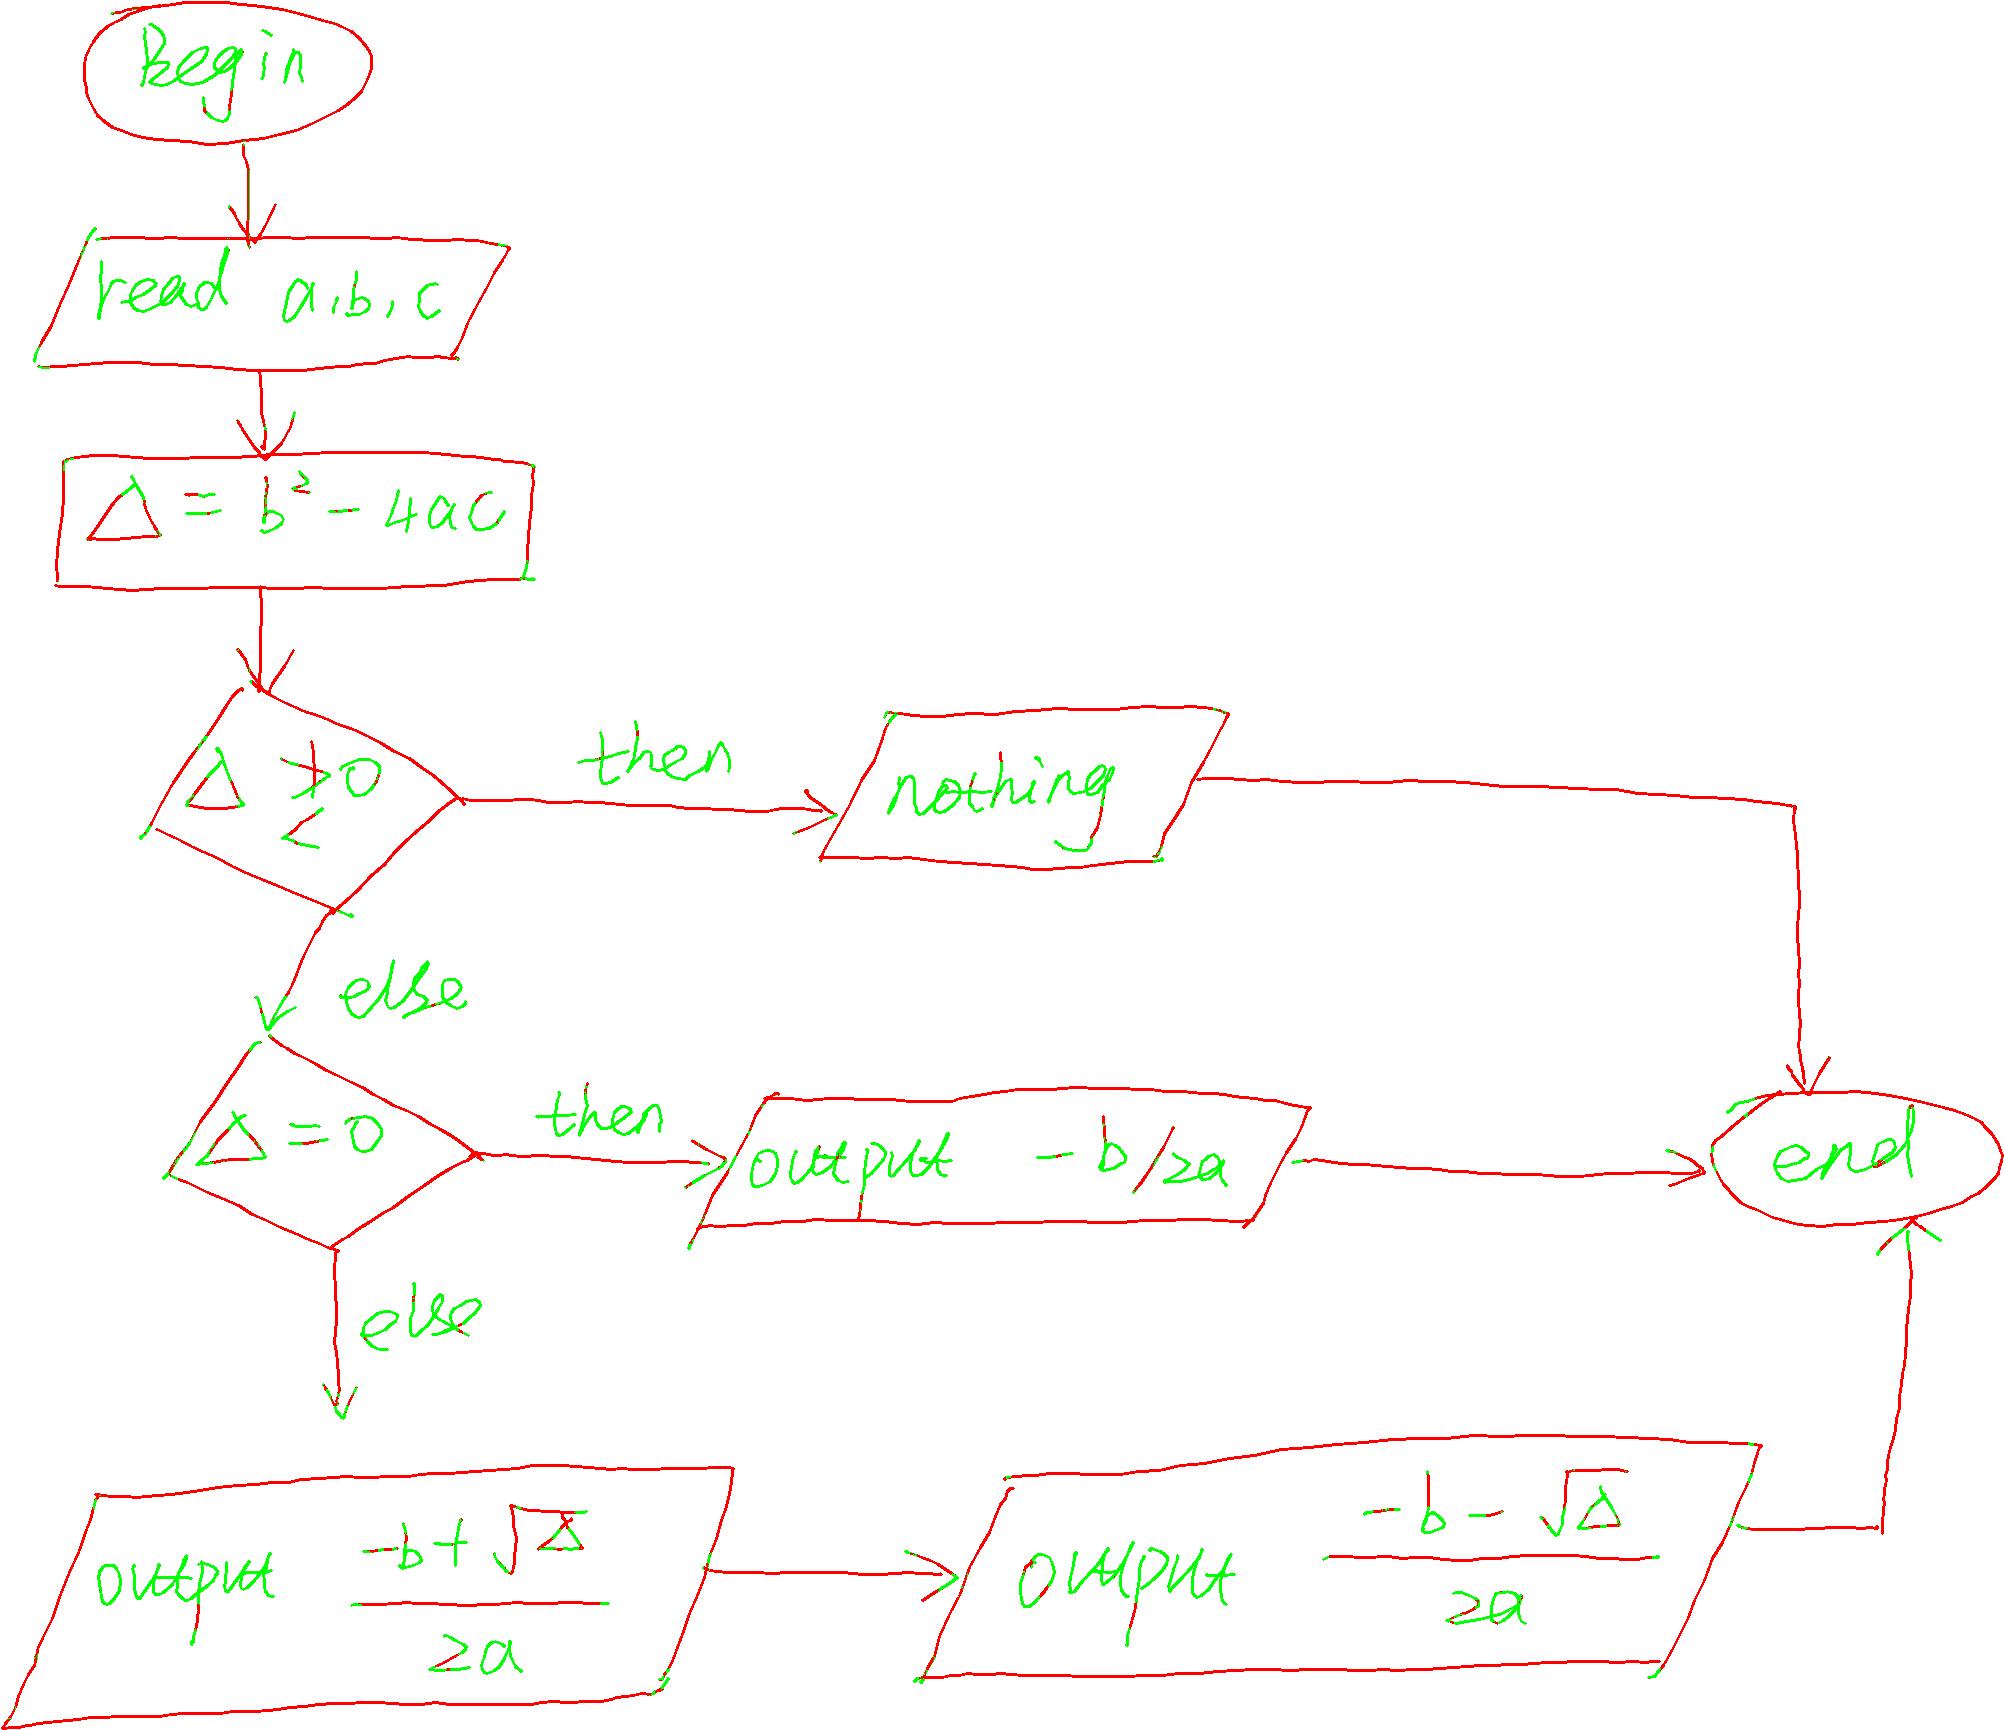 Begin
read a, b, c
Δ = b² - 4ac
Δ < 0
then
nothing
else
Δ = 0
then
output - b/2a
end
else
output (-b + √Δ) / 2a
output (-b - √Δ) / 2a